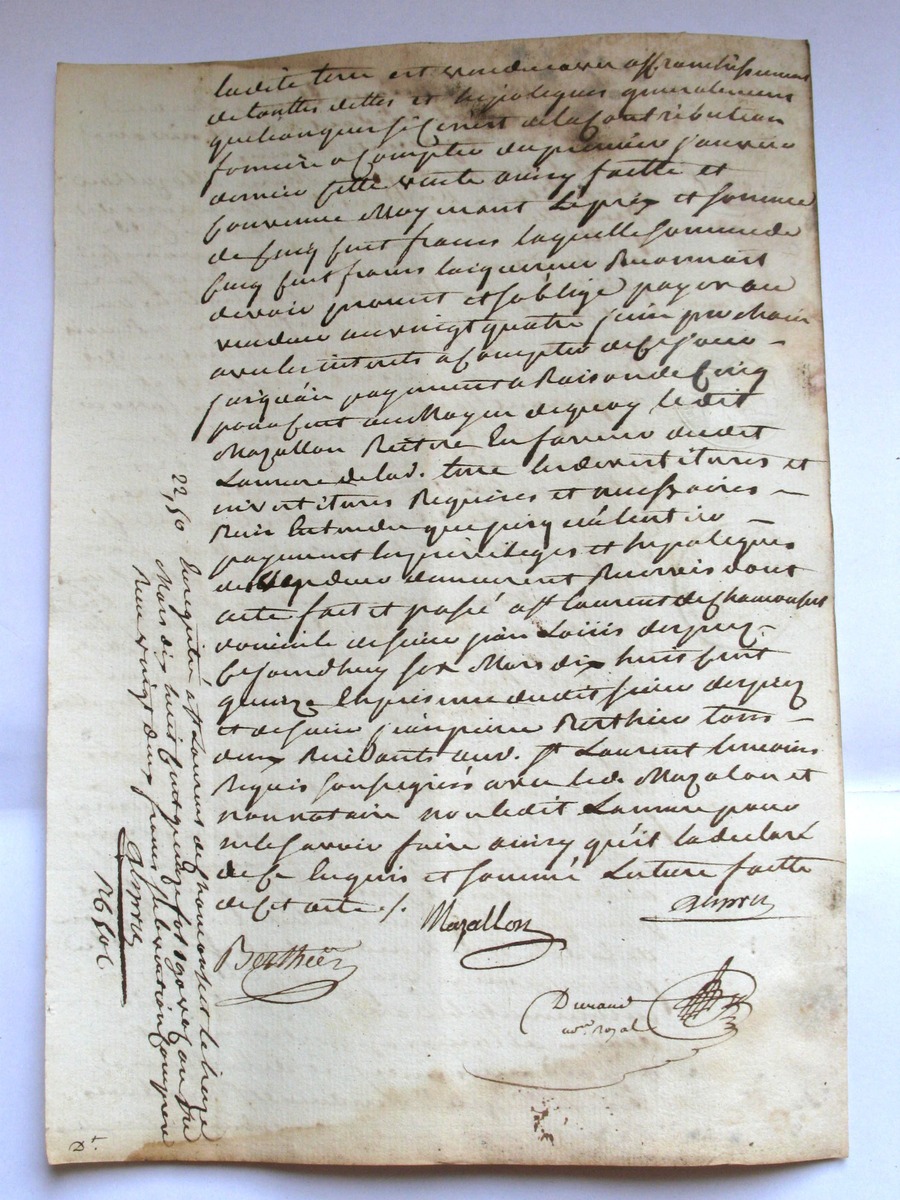 ladite terre est vendue avec affranchissement
de touttes dettes et hipoteques generalement
quelconques si ce n'est de la Contribution
fonciere a Compter du premier janvier
dernier Cette vente ainsy faitte et
Convenue Moyenant Le prix et somme
de Cinq Cent francs laquelle somme de
Cinq Cent francs lacquereur Reconnait
devoir promet et soblige payer au
vendeur au vingt quatre juin prochain
avec les interets a Compter de Ce jour
jusqu'au payement a Raison de Cinq
pour Cent au Moyen de quoy le dit
Mazallon Retire En faveur dudit
Lamure de lad. terre les devestitures et
investitures Requises et necessaires
Bien Entendu que jusqu'a l'entier
payement les privileges et hypoteques
du vendeur demeurent Reservés dont
acte fait et passé a St Laurent de Chamousset
domicile de sieur jean Louis desprez
Ce jourdhuy six Mars dix huit Cent
quinze En presence dudit sieur desprez
et de sieur jean pierre Berthier tous
deux Residants aud. St Laurent temoins
Requis soussignés avec led. Mazalon et
nous notaire non ledit Lamure pour
ne le savoir faire ainsy qu'il la declaré
de Ce Enquis et sommé Lecture faitte
de Cet acte ./.
Mazallon
Berthier
Durand
nre royal
22,50 Enregistré a St Laurent de Chamousset le treize
Mars dix huit Cent quinze
Reçu vingt deux francs subvention Comprise
Dt.